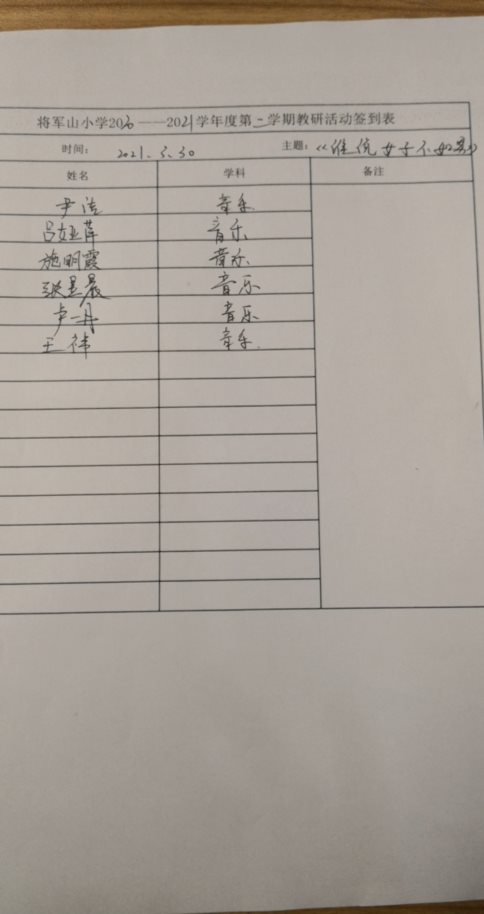 将军山小学2020——2021学年度第二学期教研活动签到表
时间: 2021.3.30 主题:《谁说女子不如男》
姓名 学科 备注
尹洁 音乐
吕娅萍 音乐
施明霞 音乐
张昱晨 音乐
卢一丹 音乐
王祎 音乐